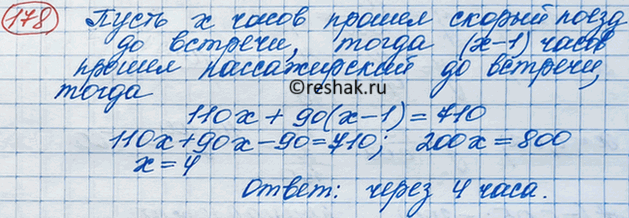 178 Пусть x часов прошел скорый поезд
до встречи, тогда (x-1) часов
прошел пассажирский до встречи,
тогда
©reshak.ru
110x + 90(x-1) = 710
110x+90x-90=710; 200x=800
x=4
Ответ: через 4 часа.